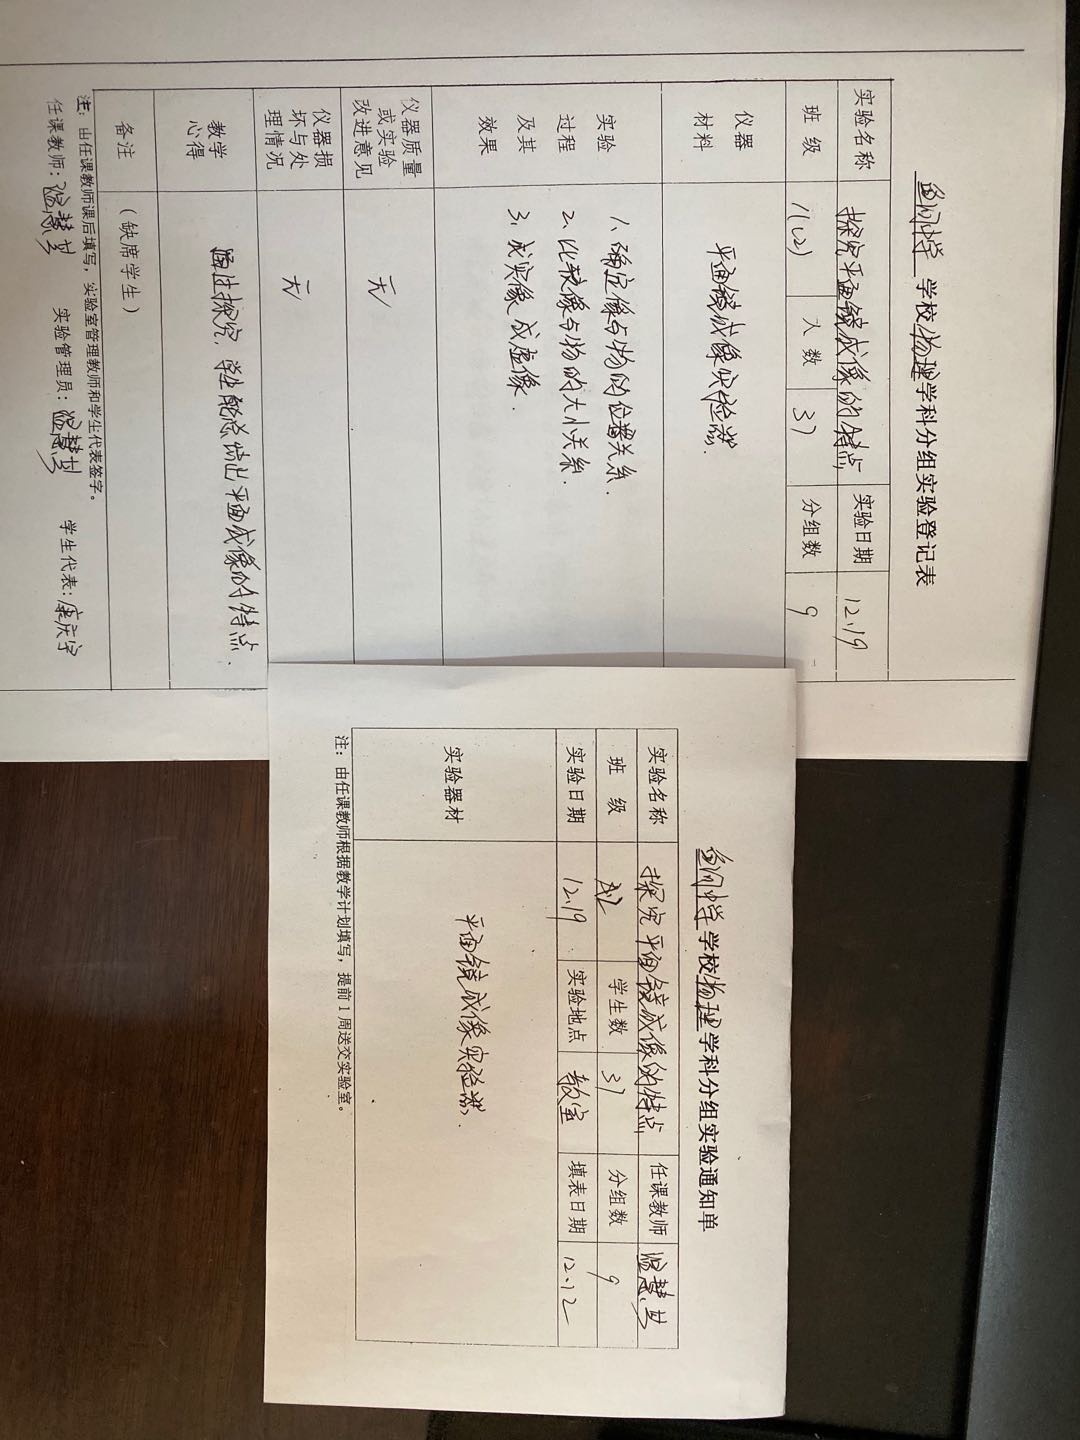 学校物理学科分组实验登记表
实验名称 探究平面镜成像的特点 实验日期 12.19
班 级 人 数 37 分组数 9
仪器材料 平面镜成像实验器.
实验过程及其效果
1、确定像与物的位置关系.
2、比较像与物的大小关系.
3、成实像成虚像.
仪器质量或实验改进意见 无
仪器损坏与处理情况 无
教学心得 通过探究,学生能总结出平面成像的特点.
备注 (缺席学生)
注:由任课教师课后填写,实验室管理教师和学生代表签字。
任课教师: 实验管理员: 学生代表:康庆宇
中学 学校物理学科分组实验通知单
实验名称 探究平面镜成像的特点 任课教师
班 级 学生数 37 分组数 9
实验日期 12.19 实验地点 教室 填表日期 12.12
实验器材 平面镜成像实验器.
注:由任课教师根据教学计划填写,提前1周送交实验室。